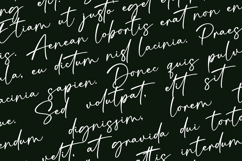 ng elit. Sed
Etiam ut justo eget elit
Aenean lobortis erat non en
la, eu dictum nisl lacinia. Praes
lacinia sapien. Donec quis pulv
Sed volutpat, elit sit
ue. lorem
endum dignissim,
velit, at gravida dui torto
ttis interdum